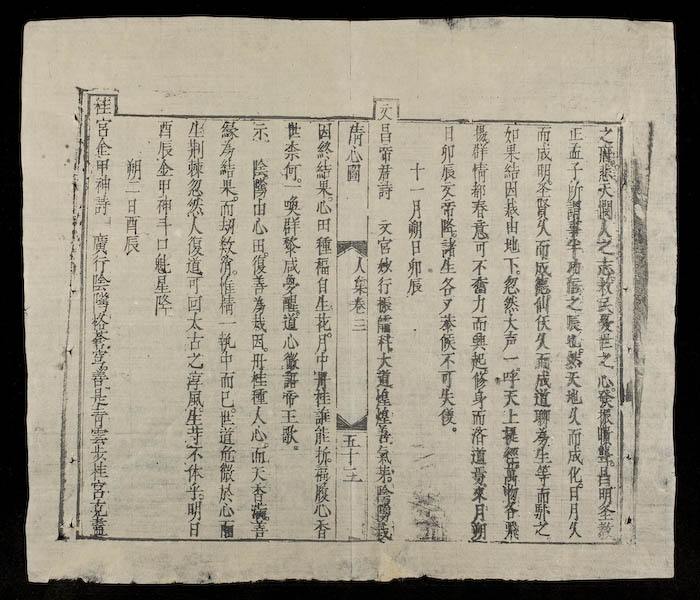 之悲天憫人之志救民憂世之心發振聵聾昌明圣教
正孟子所謂事半功倍之辰也然天地久而成化日月久
而成明圣賢久而成德仙佉久而成道聊為生等而駢之
如果結因栽由地下忽然大声一呼天上提經萬物各飛
揚群情都春意可不奮力而興起修身而洛道㦲來月朔
日卯辰文帝降諸生各乂恭候不可失儀
十一月朔日卯辰
文昌帝君詩 文宮敕行振儒科大道煌煌善氣
情心圖
人集卷三
五十二
因終結果心田種福自生花月中丹桂誰能折福履心香
世柰何一喚群黎咸夢醒道心微語帝王歌
示 陰隲由心田復善為栽因丹桂種人心而天香滿善
緣為結果而刼数消惟情一執中而已世道危微於心而
生荆棘忽然人復道可回太古之淳風生等不休乎明日
酉辰金甲神斗口魁星降
朔二日酉辰
桂宮金甲神詩 廣行陰隲格蒼穹善是青雲步桂宮克盡